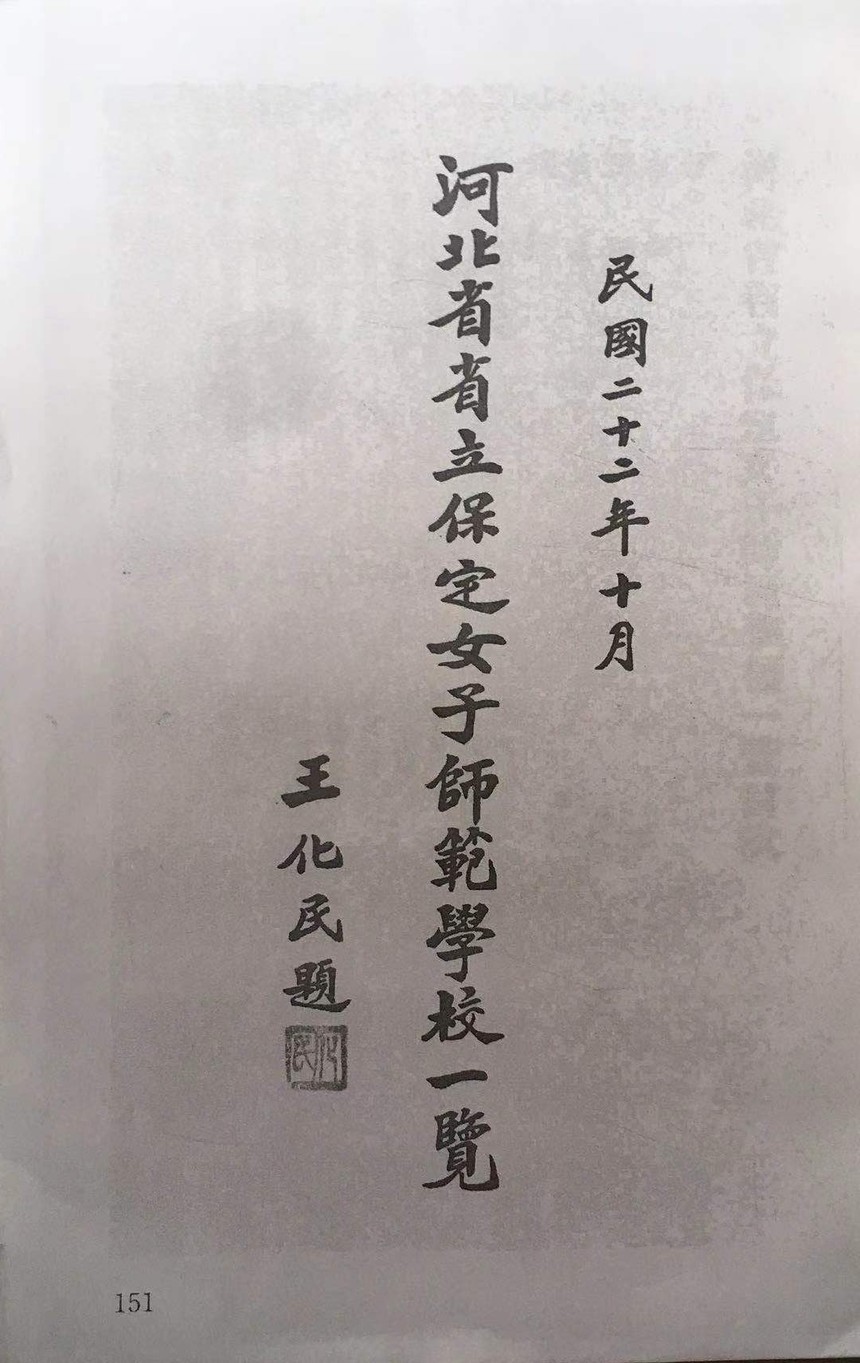 民國二十二年十月
河北省省立保定女子師範學校一覽
王化民題
化民
151